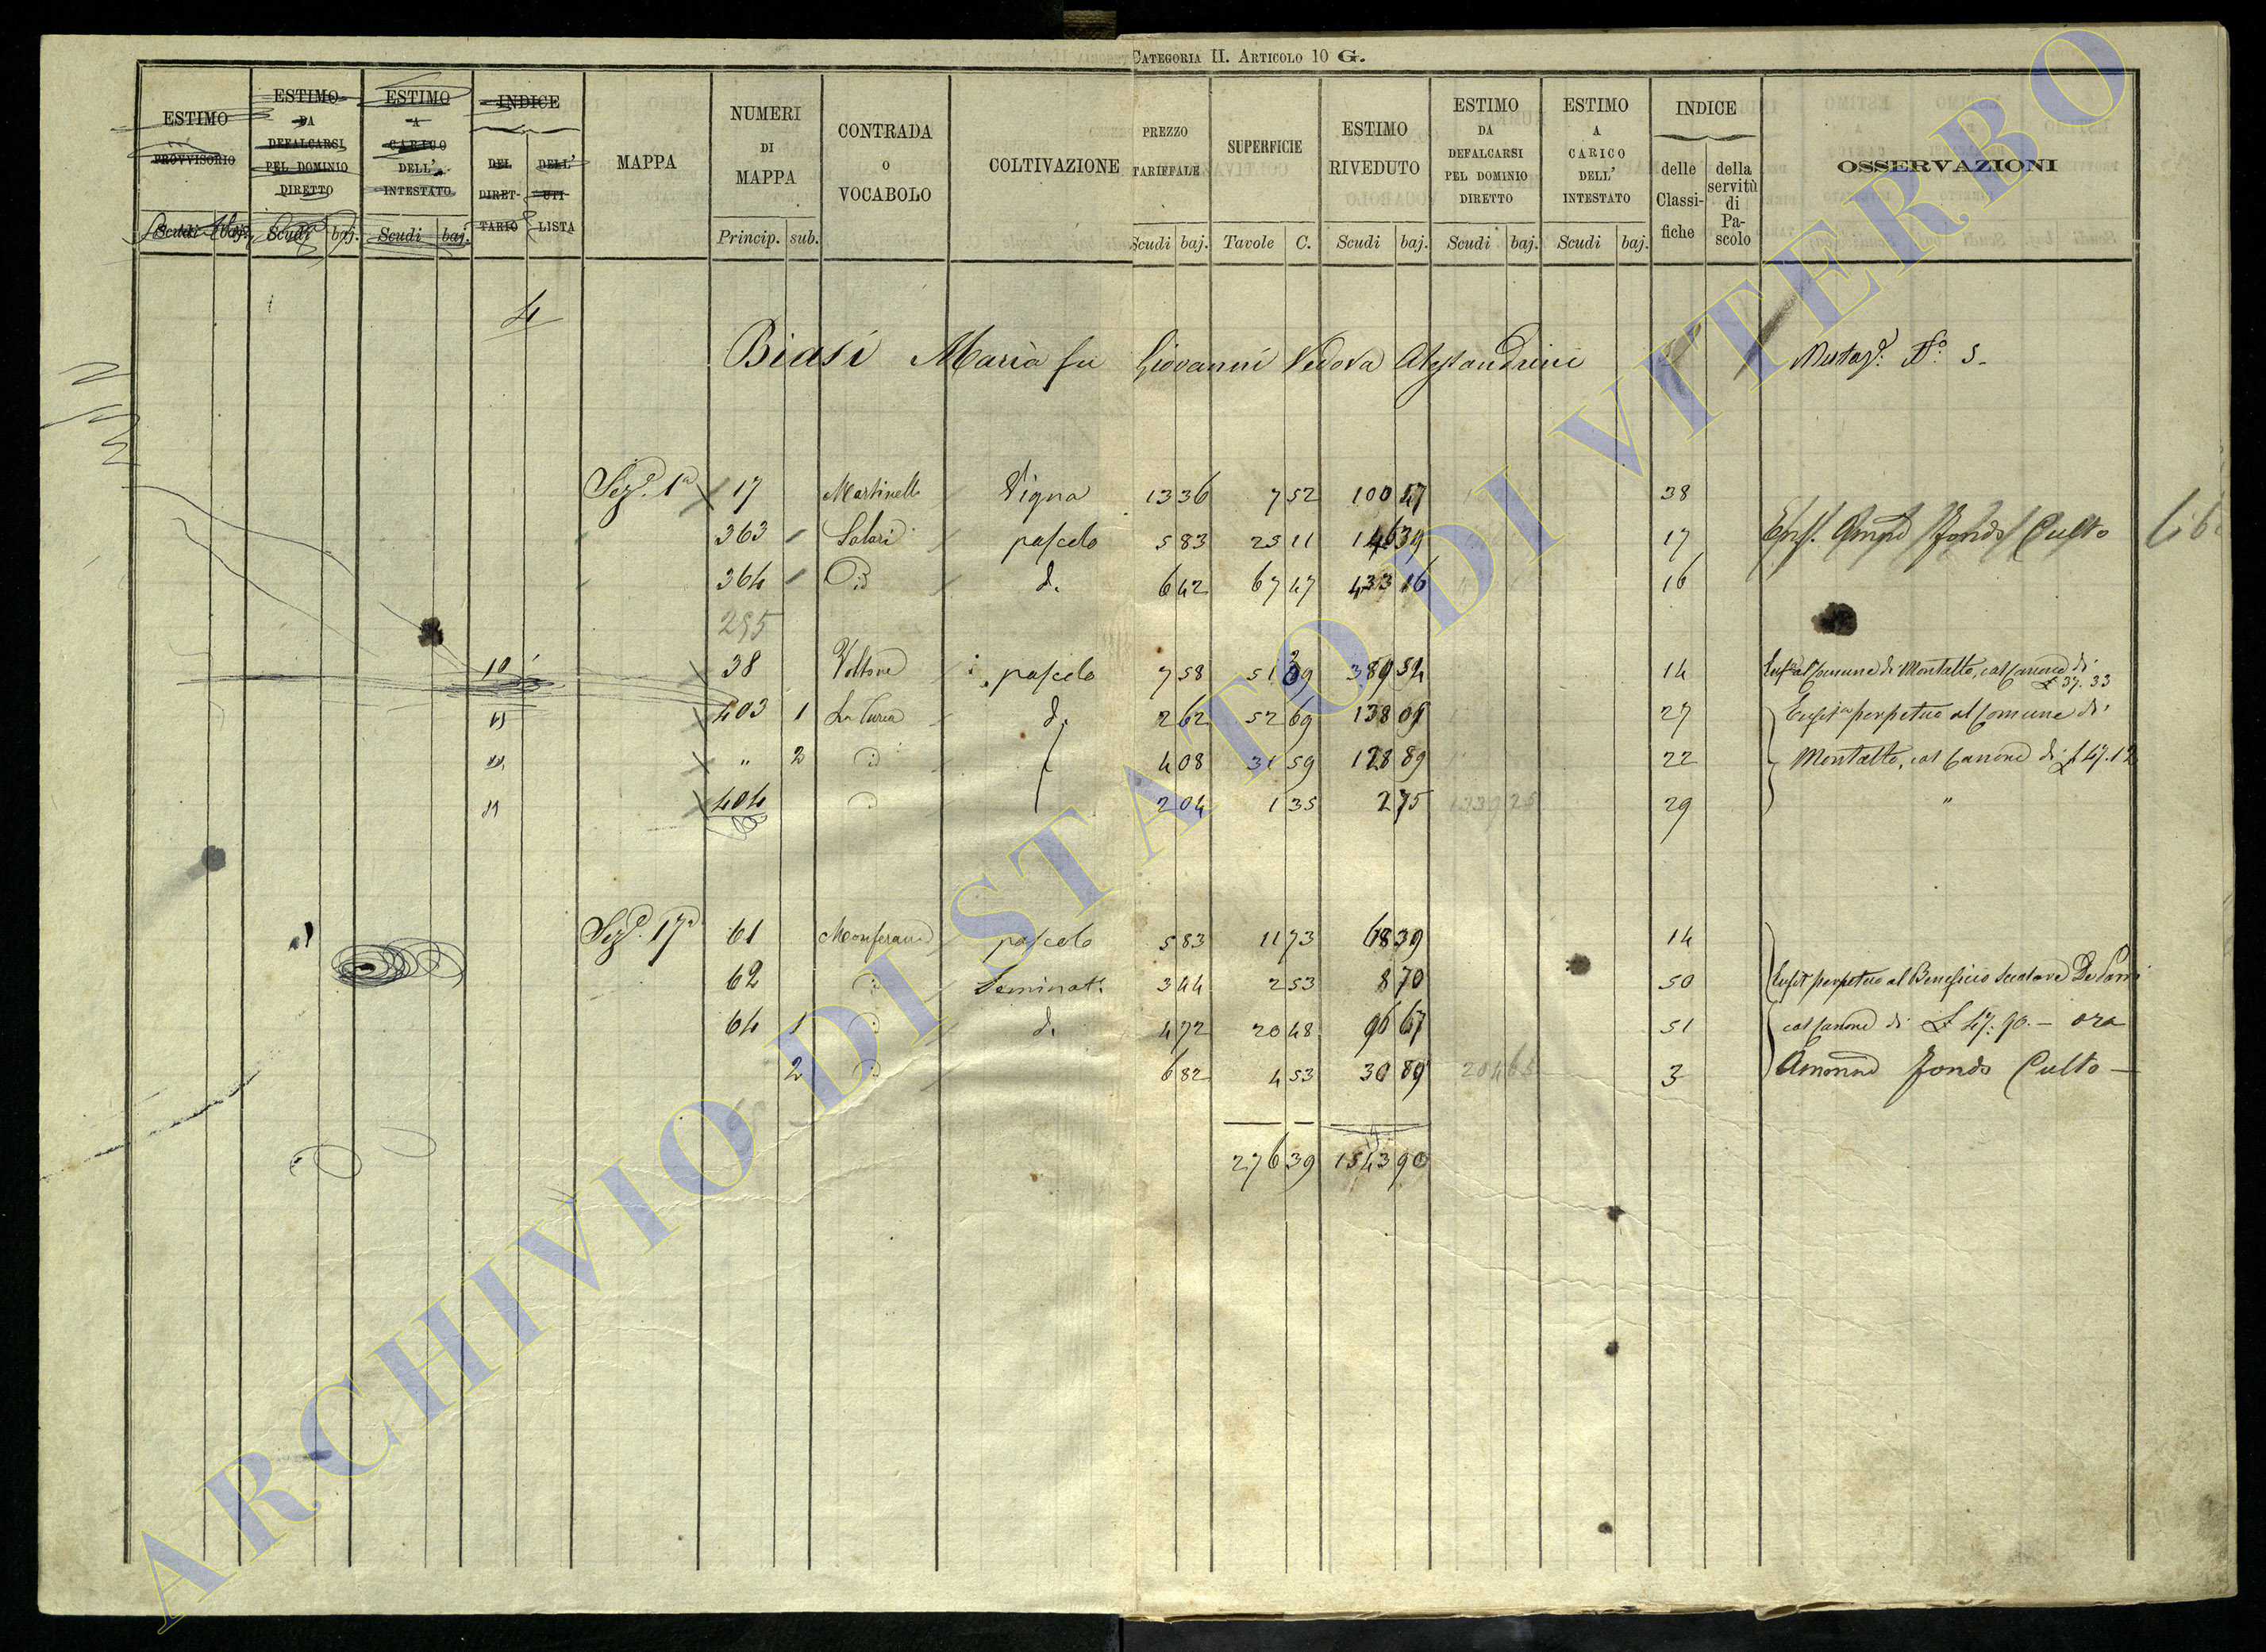 CATEGORIA II. ARTICOLO 10 G.
ESTIMO PROVVISORIO Scudi baj.
ESTIMO DA DEFALCARSI PEL DOMINIO DIRETTO Scudi baj.
ESTIMO A CARICO DELL' INTESTATO Scudi baj.
INDICE DEL DIRETTARIO DELL' UTILISTA
MAPPA
NUMERI DI MAPPA Princip. sub.
CONTRADA O VOCABOLO
COLTIVAZIONE
PREZZO TARIFFALE Scudi baj.
SUPERFICIE Tavole C.
ESTIMO RIVEDUTO Scudi baj.
ESTIMO DA DEFALCARSI PEL DOMINIO DIRETTO Scudi baj.
ESTIMO A CARICO DELL' INTESTATO Scudi baj.
INDICE delle Classifiche della servitù di Pascolo
OSSERVAZIONI
4
Biasi Maria fu Giovanni Vedova Alessandrini
N.o 5
Sez.e 1a 17 Vigna 13 36 7 52 100 47 38
363 pascolo 5 83 25 11 146 39 17 Fondo Culto
364 d. 6 42 67 47 433 16 16
295
10 38 Voltone pascolo 7 58 51 39 389 54 14 al Comune di Montalto, col Canone di £ 37. 33
11 403 1 d. 2 62 52 69 138 05 27 perpetuo al Comune di
11 " 2 4 08 31 59 128 89 22 Montalto, col Canone di £ 47. 12
11 404 2 04 1 35 2 75 1339 25 29 "
Sez.e 17a 61 pascolo 5 83 11 73 68 39 14
62 Seminat. 3 44 2 53 8 70 50 perpetuo al Beneficio
64 1 d. 4 72 20 48 96 67 51 col Canone di £ 47. 90. – ora
2 6 82 4 53 30 89 204 65 3 Fondo Culto –
276 39 1543 90
ARCHIVIO DI STATO DI VITERBO